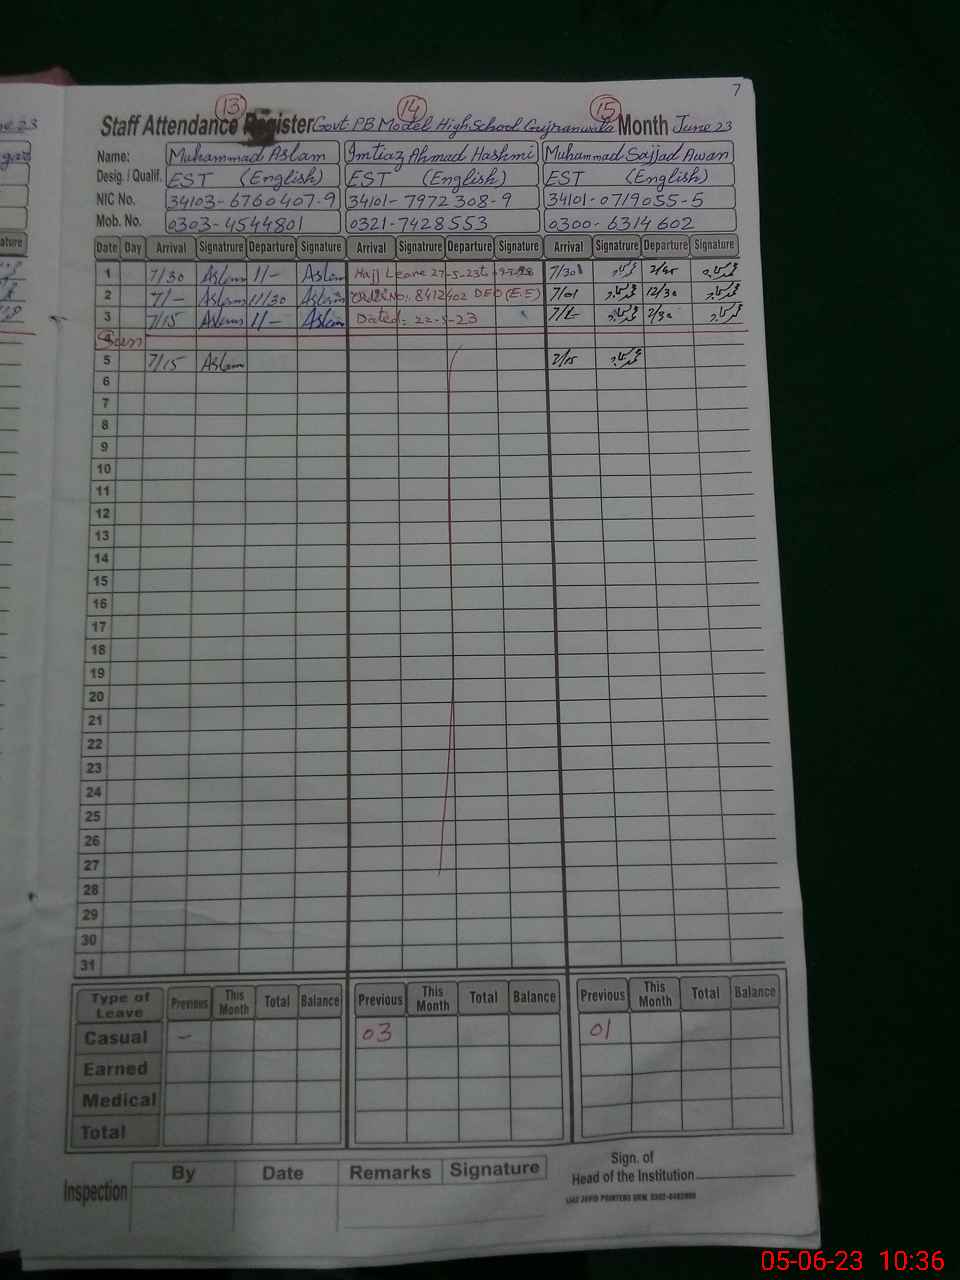 7
13 14 15
Staff Attendance Register Govt PB Model High School Gujranwala Month June 23
Name: Muhammad Aslam Imtiaz Ahmad Hashmi Muhammad Sajjad Awan
Desig. / Qualif. EST (English) EST (English) EST (English)
NIC No. 34103-6760407-9 34101-7972308-9 34101-0719055-5
Mob. No. 0303-4544801 0321-7428553 0300-6314602
Date Day Arrival Signatrure Departure Signature Arrival Signatrure Departure Signature Arrival Signatrure Departure Signature
1 7/30 Aslam 11/- Aslam Hajj Leave 27-5-23 to 7/30
2 7/- Aslam 11/30 Aslam No: 8412402 DEO (E.E) 7/01 12/30
3 7/15 Aslam 11/- Aslam Dated: 22-5-23
4 Sun
5 7/15 Aslam 7/15
6
7
8
9
10
11
12
13
14
15
16
17
18
19
20
21
22
23
24
25
26
27
28
29
30
31
Type of Leave Previous This Month Total Balance Previous This Month Total Balance Previous This Month Total Balance
Casual - 03 01
Earned
Medical
Total
Inspection By Date Remarks Signature
Sign. of
Head of the Institution
05-06-23 10:36